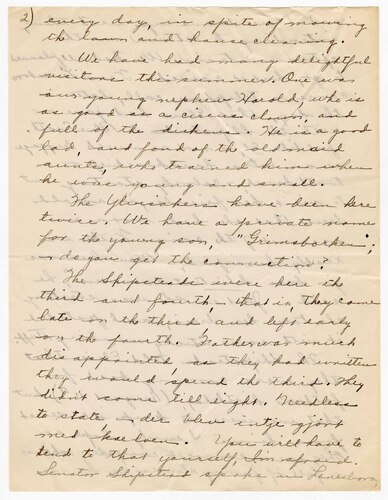 2) every day, in spite of mowing
the lawn and house cleaning.
We have had many delightful
visitors this summer. One was
our young nephew Harold, who is
as good as a circus clown, and
full of the dickens. He is a good
lad, and fond of the old maid
aunts, who trained him when
he was young and small.
The Ylvisakers have been here
twice. We have a private name
for the young son, "Grimsborken";
do you get the connection?
The Shipsteads were here the
third and fourth, that is, they came
late on the third and left early
on the fourth. Father was much
disappointed, as they had written
they would spend the third. They
didn't come till eight. Needless
to state, der blev intje gjort
med. You will have to
tend to that yourself, I'm afraid.
Senator Shipstead spoke in Lanesboro,